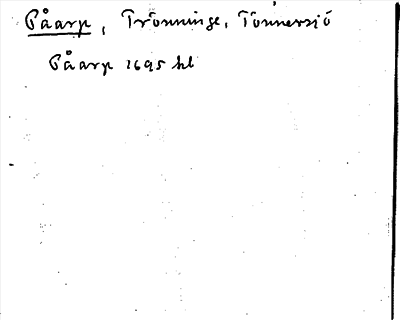 Påarp, Trönninge, Tönnersjö
Påarp 1695 hl